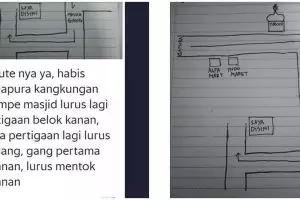 SAYA
DISINI
ute nya ya, habis
apura kangkungan
mpe masjid lurus lagi
tigaan belok kanan,
a pertigaan lagi lurus
ang, gang pertama
anan, lurus mentok
anan
ALFA
MART
INDO
MARET
SAYA
DISINI